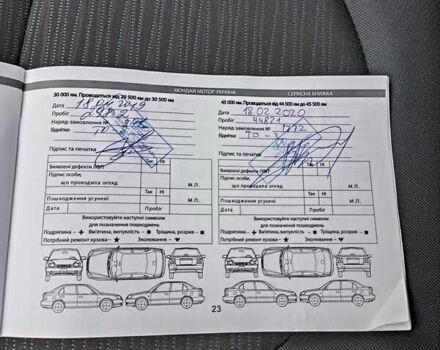 ХЮНДАЙ МОТОР УКРАЇНА
СЕРВІСНА КНИЖКА
30 000 км. Проводиться від 29 500 км до 30 500 км
Дата
Пробіг
Наряд-замовлення №
Відмітки ТО
Підпис та печатка
Виявлені дефекти ЛФП Так Ні
Підпис особи,
що проводила огляд М.П.
Так Ні
Пошкодження усунені М.П.
Дата Пробіг
45 000 км. Проводиться від 44 500 км до 45 500 км
Дата 18.02.2020
Пробіг 44821
Наряд-замовлення №
Відмітки ТО
Підпис та печатка
Виявлені дефекти ЛФП Так Ні
Підпис особи,
що проводила огляд М.П.
Так Ні
Пошкодження усунені М.П.
Дата Пробіг
Використовуйте наступні символи
для позначення пошкоджень
Подряпина - + Вм'ятина, випуклість - ● Тріщина, розрив - ■
Потрібний ремонт кузова - ★ Сколювання - ▼
Використовуйте наступні символи
для позначення пошкоджень
Подряпина - + Вм'ятина, випуклість - ● Тріщина, розрив - ■
Потрібний ремонт кузова - ★ Сколювання - ▼
23